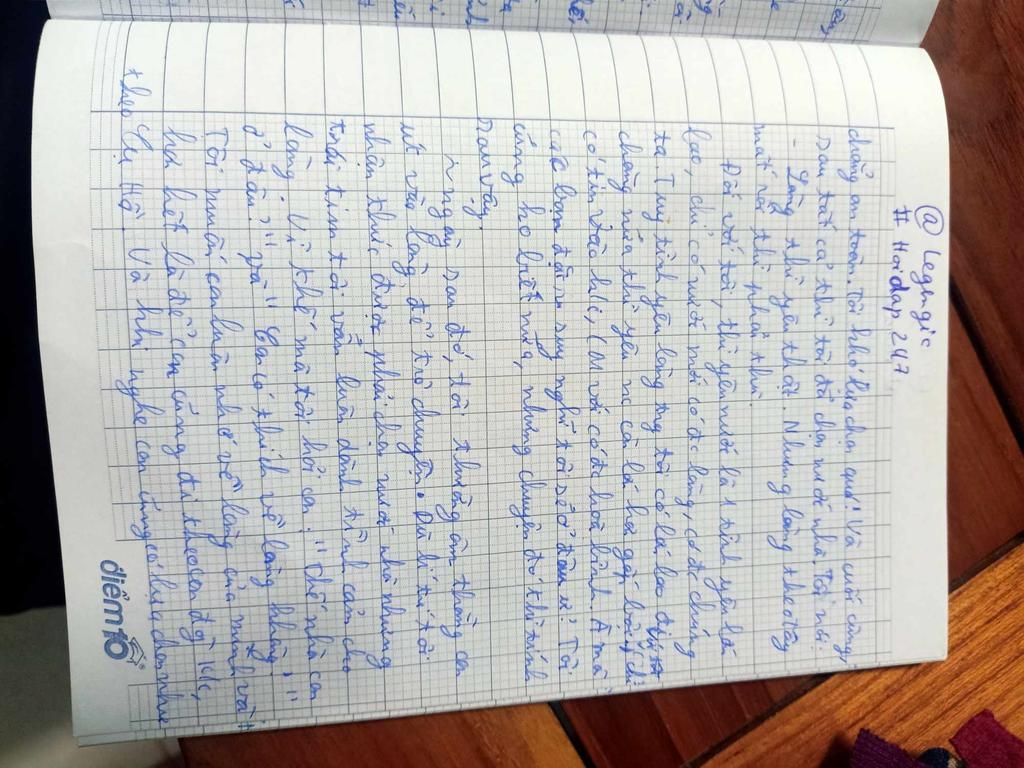 @ Legragic
# Hoidap 247
chẳng an toàn. Tôi khó lựa chọn quá! Và cuối cùng,
Sau tất cả thì tôi đã chọn nước nhà. Tôi nói:
- Làng thì yêu thật. Nhưng làng theo Tây
mất rồi thì phải thù.
Đối với tôi, thì yêu nước là 1 tình yêu lớn
lao, chỉ có nước mới có đc làng, có đc chúng
ta. Tuy tình yêu làng trg tôi có lớn lao
chăng nữa thì yêu nc còn lớn hơn gấp bội,
có tin vào k/c, CM với có đc hoà bình. À mà
các bạn đừng suy nghĩ tôi sẽ ở đâu ư? Tôi
cũng ko biết nữa, nhưng chuyện đó thì tính
sau vậy.
Những ngày sau đó, tôi thường ôm thằng con
út vào lòng để trò chuyện. Dù lí trí tôi
nhận thức được phải chọn nước nhà nhưng
trái tim tôi vẫn luôn dành tình cảm cho
làng. Vì thế mà tôi hỏi con: "Thế nhà con
ở đâu?" và "Con có thích về làng không?"
Tôi muốn con luôn nhớ về làng của mình và
hơn hết là để con cũng đi theo con đg k/c,
theo Cụ Hồ. Và khi nghe con cũng có lựa chọn như
điểm 10